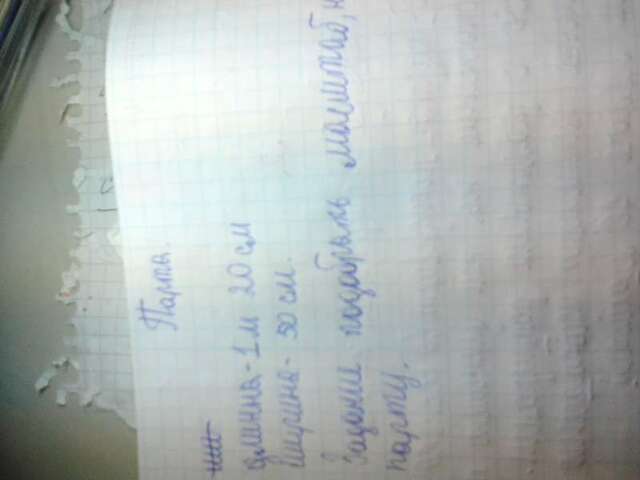 Парта.
длинна-1м 20 см
Ширина- 50 см.
Задание подобрать масштаб,
парту.